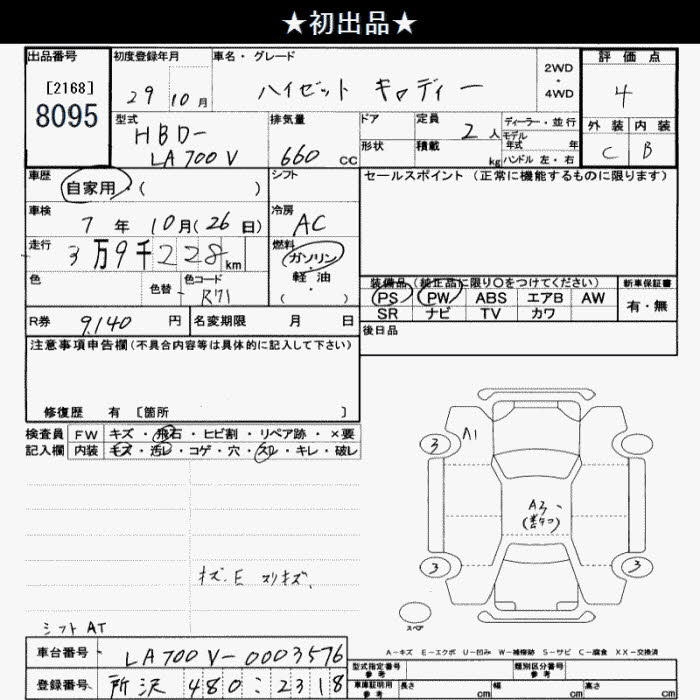 ★初出品★
出品番号 初度登録年月 車名・グレード 2WD ・ 4WD 評価点
[2168] 8095
29 10月 ハイゼット キャディー 4
型式 排気量 ドア 定員 2人 ディーラー・並行 外装 内装
HBD- モデル年式 年
LA700V 660 CC 形状 積載 kg ハンドル 左・右 C B
車歴 シフト セールスポイント(正常に機能するものに限ります)
自家用・( )
車検 冷房
7年 10月(26日) AC
走行 燃料
3万9千228km ガソリン・軽油
色 色替 色コード ・( ) 装備品(純正品に限り○をつけてください) 新車保証書
R71 PS PW ABS エアB AW 有・無
SR ナビ TV カワ
R券 9,140円 名変期限 月 日 後日品
注意事項申告欄(不具合内容等は具体的に記入して下さい)
修復歴 有 〔箇所 〕
検査員 FW キズ・飛石・ヒビ割・リペア跡・×要
記入欄 内装 キズ・汚レ・コゲ・穴・スレ・キレ・破レ
3 A1
A3
3 3
キズ、E スリキズ、
スペア
シフトAT
A-キズ E-エクボ U-凹み W-補修跡 S-サビ C-腐食 XX-交換済
車台番号 LA700V-0003576
登録番号 所沢 480 : 2318
型式指定番号 参考 類別区分番号 参考
車庫証明用 参考 長さ cm 幅 cm 高さ cm